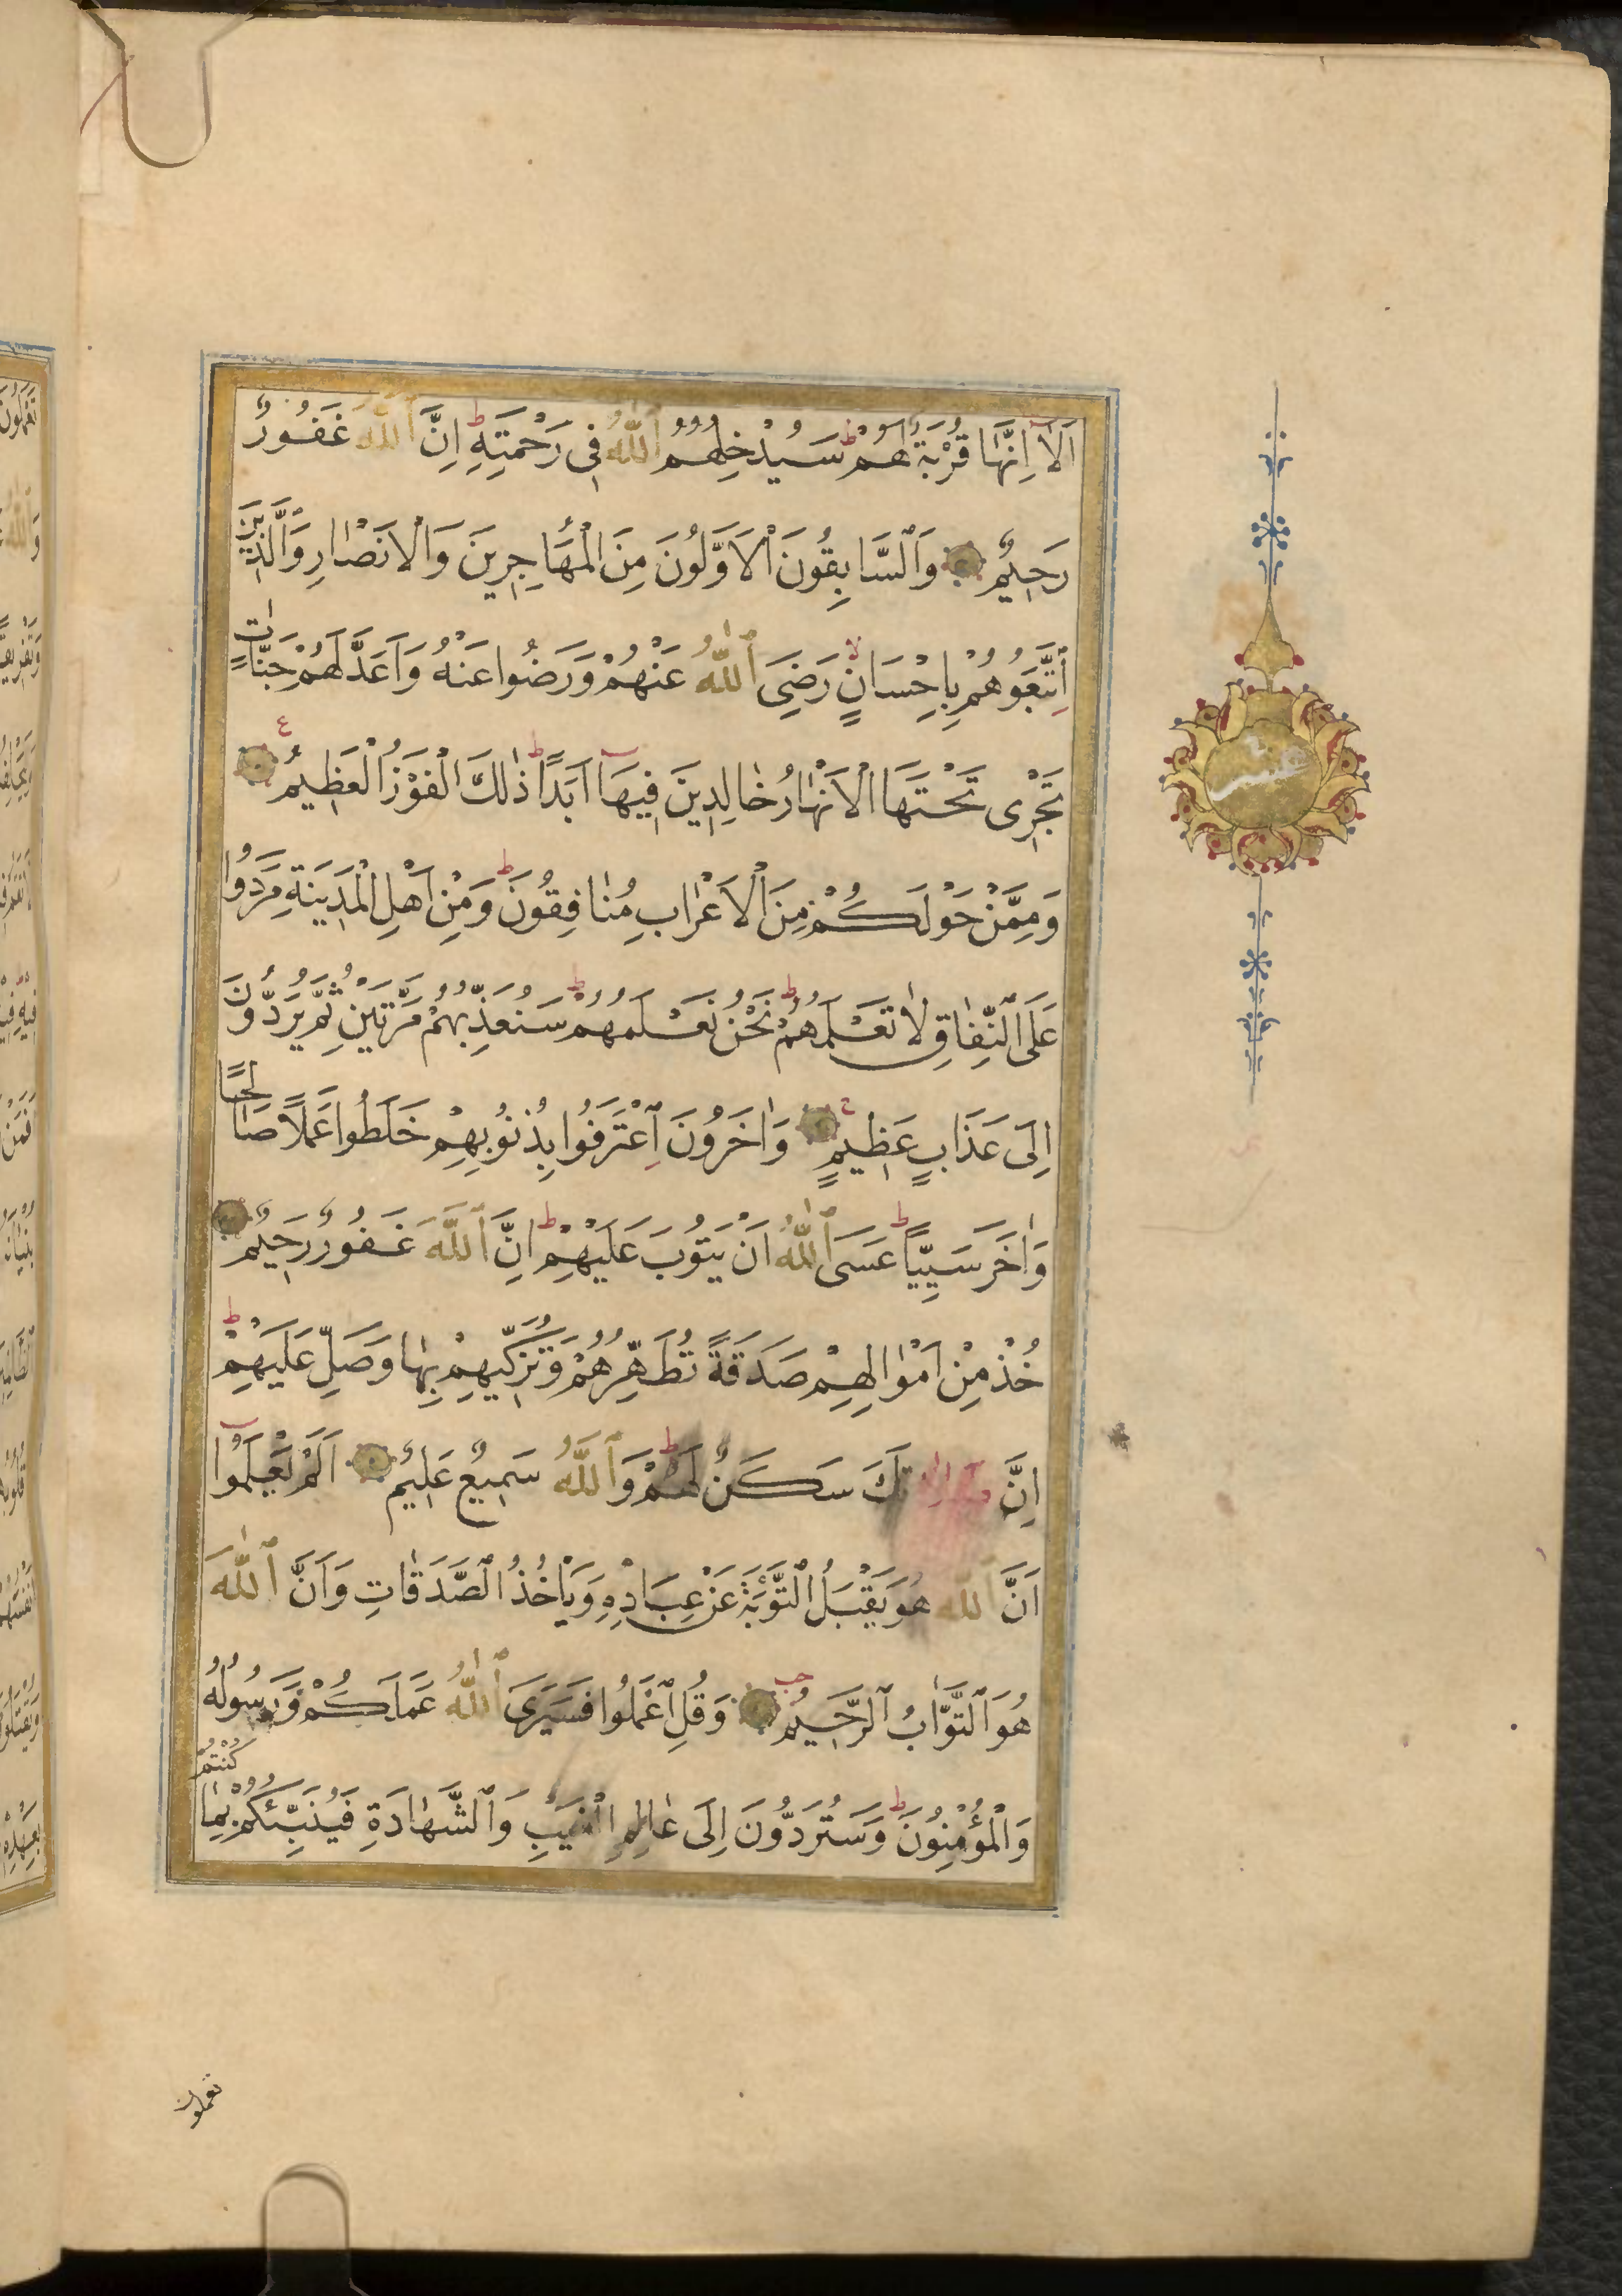 اَلَا اِنَّهَا قُرْبَةٌ لَهُمْ سَيُدْخِلُهُمُ اللّٰهُ فِى رَحْمَتِهِ اِنَّ اللّٰهَ غَفُورٌ
رَحِيمٌ وَالسَّابِقُونَ الْاَوَّلُونَ مِنَ الْمُهَاجِرِينَ وَالْاَنْصَارِ وَالَّذِينَ
اِتَّبَعُوهُمْ بِاِحْسَانٍ رَضِىَ اللّٰهُ عَنْهُمْ وَرَضُوا عَنْهُ وَاَعَدَّ لَهُمْ جَنَّاتٍ
تَجْرِى تَحْتَهَا الْاَنْهَارُ خَالِدِينَ فِيهَا اَبَدًا ذٰلِكَ الْفَوْزُ الْعَظِيمُ
وَمِمَّنْ حَوْلَكُمْ مِنَ الْاَعْرَابِ مُنَافِقُونَ وَمِنْ اَهْلِ الْمَدِينَةِ مَرَدُوا
عَلَى النِّفَاقِ لَا تَعْلَمُهُمْ نَحْنُ نَعْلَمُهُمْ سَنُعَذِّبُهُمْ مَرَّتَيْنِ ثُمَّ يُرَدُّونَ
اِلَى عَذَابٍ عَظِيمٍ وَاٰخَرُونَ اِعْتَرَفُوا بِذُنُوبِهِمْ خَلَطُوا عَمَلًا صَالِحًا
وَاٰخَرَ سَيِّئًا عَسَى اللّٰهُ اَنْ يَتُوبَ عَلَيْهِمْ اِنَّ اللّٰهَ غَفُورٌ رَحِيمٌ
خُذْ مِنْ اَمْوَالِهِمْ صَدَقَةً تُطَهِّرُهُمْ وَتُزَكِّيهِمْ بِهَا وَصَلِّ عَلَيْهِمْ
اِنَّ صَلَاتَكَ سَكَنٌ لَهُمْ وَاللّٰهُ سَمِيعٌ عَلِيمٌ اَلَمْ يَعْلَمُوا
اَنَّ اللّٰهَ هُوَ يَقْبَلُ التَّوْبَةَ عَنْ عِبَادِهِ وَيَاْخُذُ الصَّدَقَاتِ وَاَنَّ اللّٰهَ
هُوَ التَّوَّابُ الرَّحِيمُ وَقُلِ اعْمَلُوا فَسَيَرَى اللّٰهُ عَمَلَكُمْ وَرَسُولُهُ
وَالْمُؤْمِنُونَ وَسَتُرَدُّونَ اِلَى عَالِمِ الْغَيْبِ وَالشَّهَادَةِ فَيُنَبِّئُكُمْ بِمَا كُنْتُمْ
تعملون